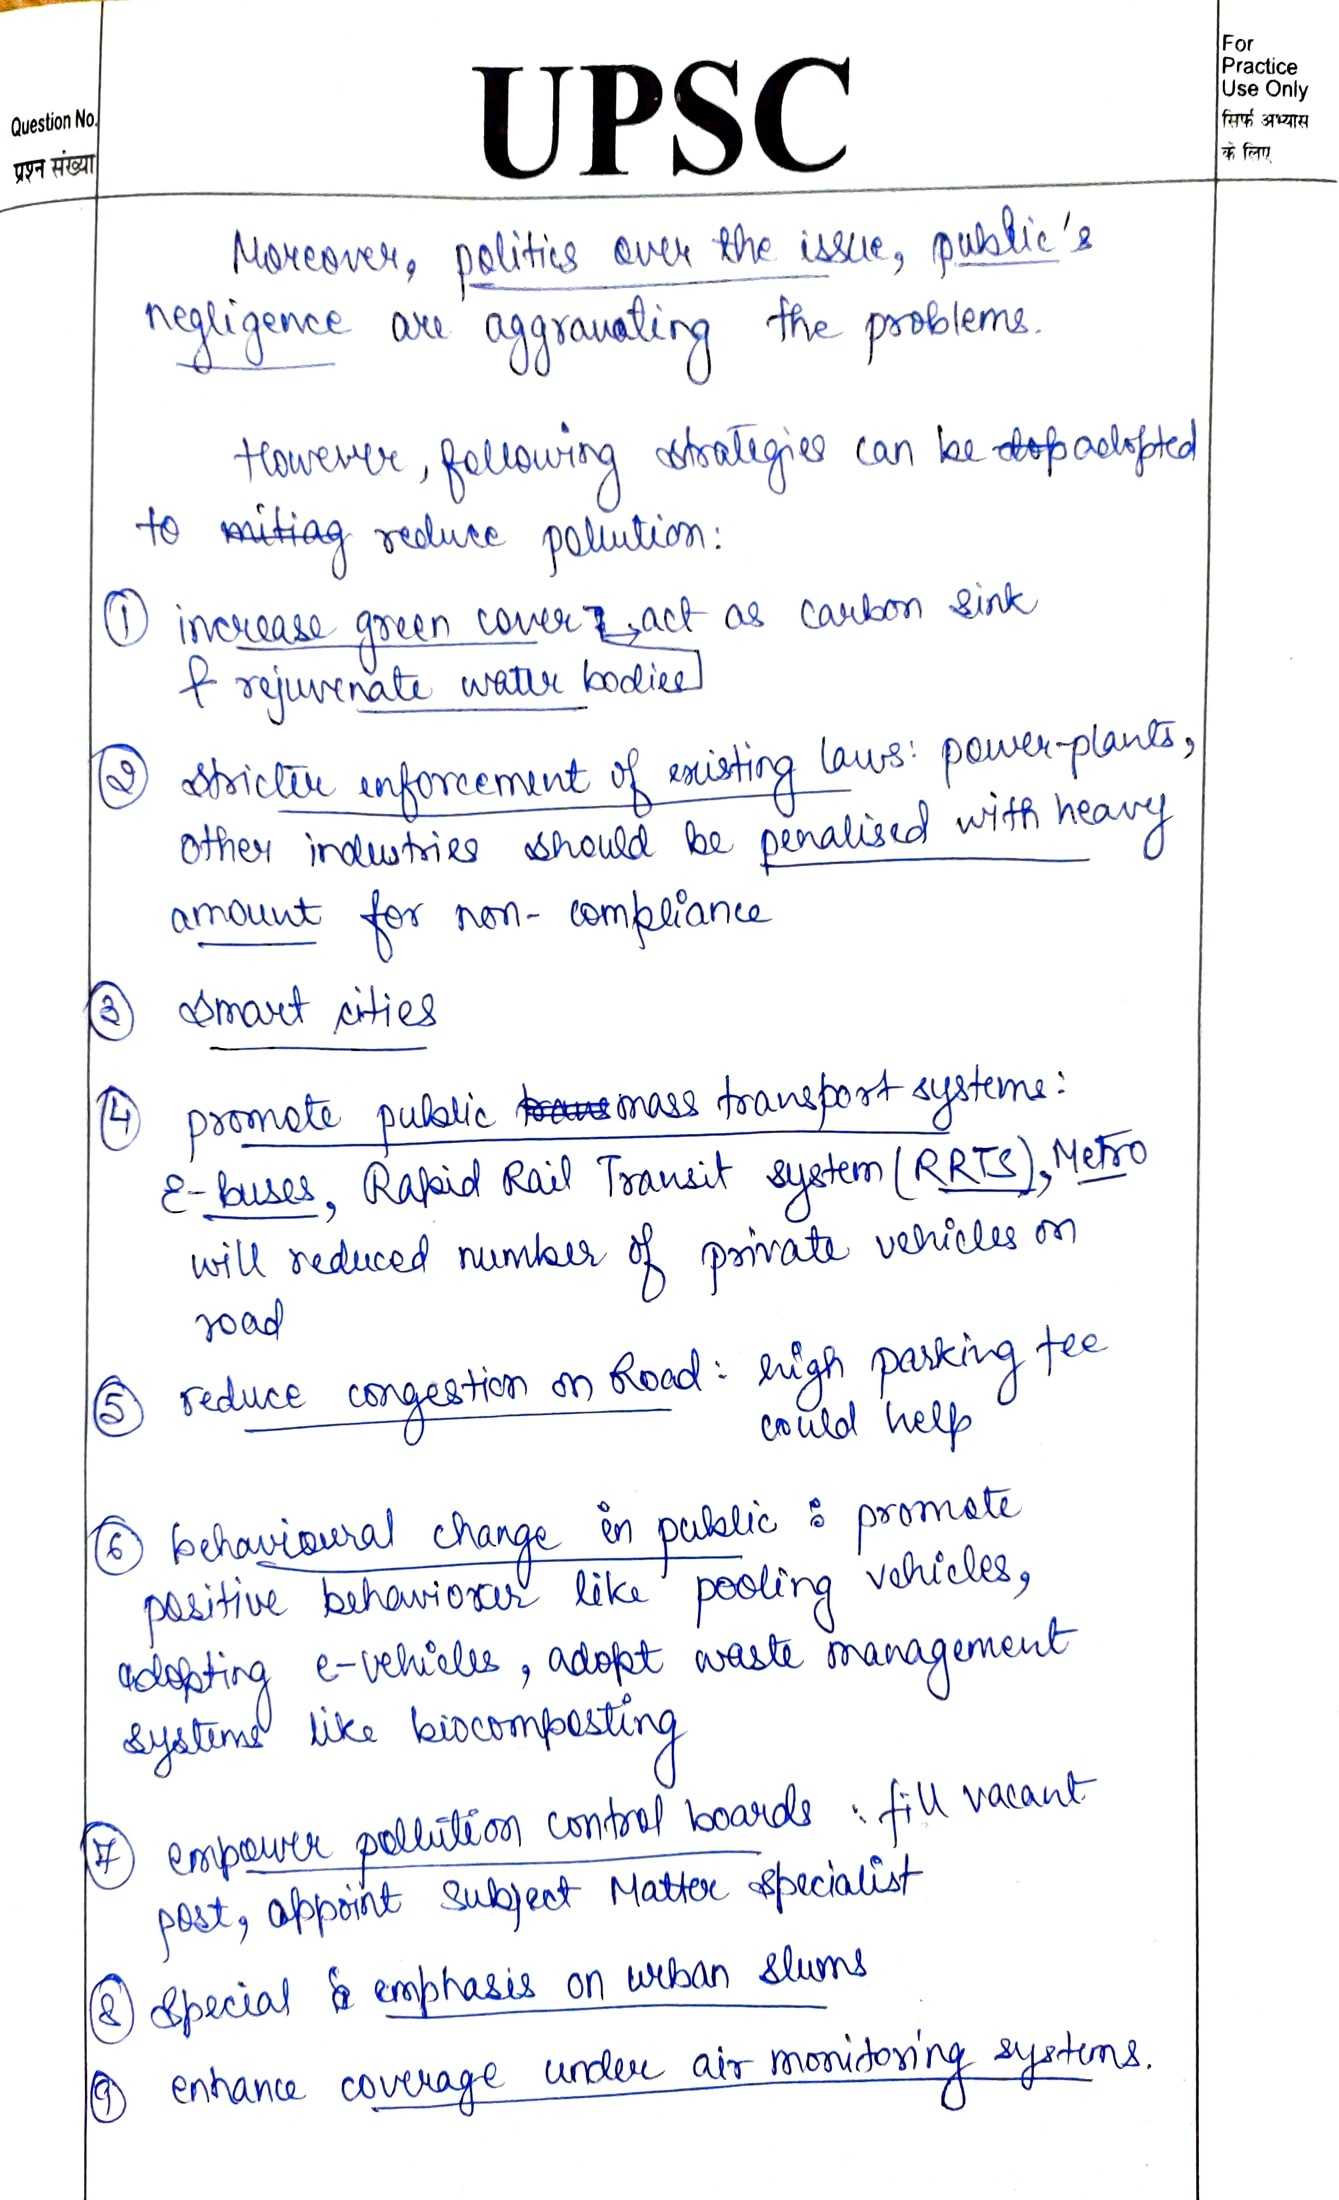 Question No.
प्रश्न संख्या
UPSC
For
Practice
Use Only
सिर्फ अभ्यास
के लिए
Moreover, politics over the issue, public's
negligence are aggravating the problems.
However, following strategies can be adopted
to reduce pollution:
① increase green cover act as carbon sink
& rejuvenate water bodies
② stricter enforcement of existing laws: power-plants,
other industries should be penalised with heavy
amount for non-compliance
③ smart cities
④ promote public mass transport systems:
E-buses, Rapid Rail Transit system (RRTS), Metro
will reduced number of private vehicles on
road
⑤ reduce congestion on Road: high parking fee
could help
⑥ behavioural change in public : promote
positive behaviour like pooling vehicles,
adopting e-vehicles, adopt waste management
systems like biocomposting
⑦ empower pollution control boards : fill vacant
post, appoint Subject Matter specialist
⑧ special emphasis on urban slums
⑨ enhance coverage under air monitoring systems.